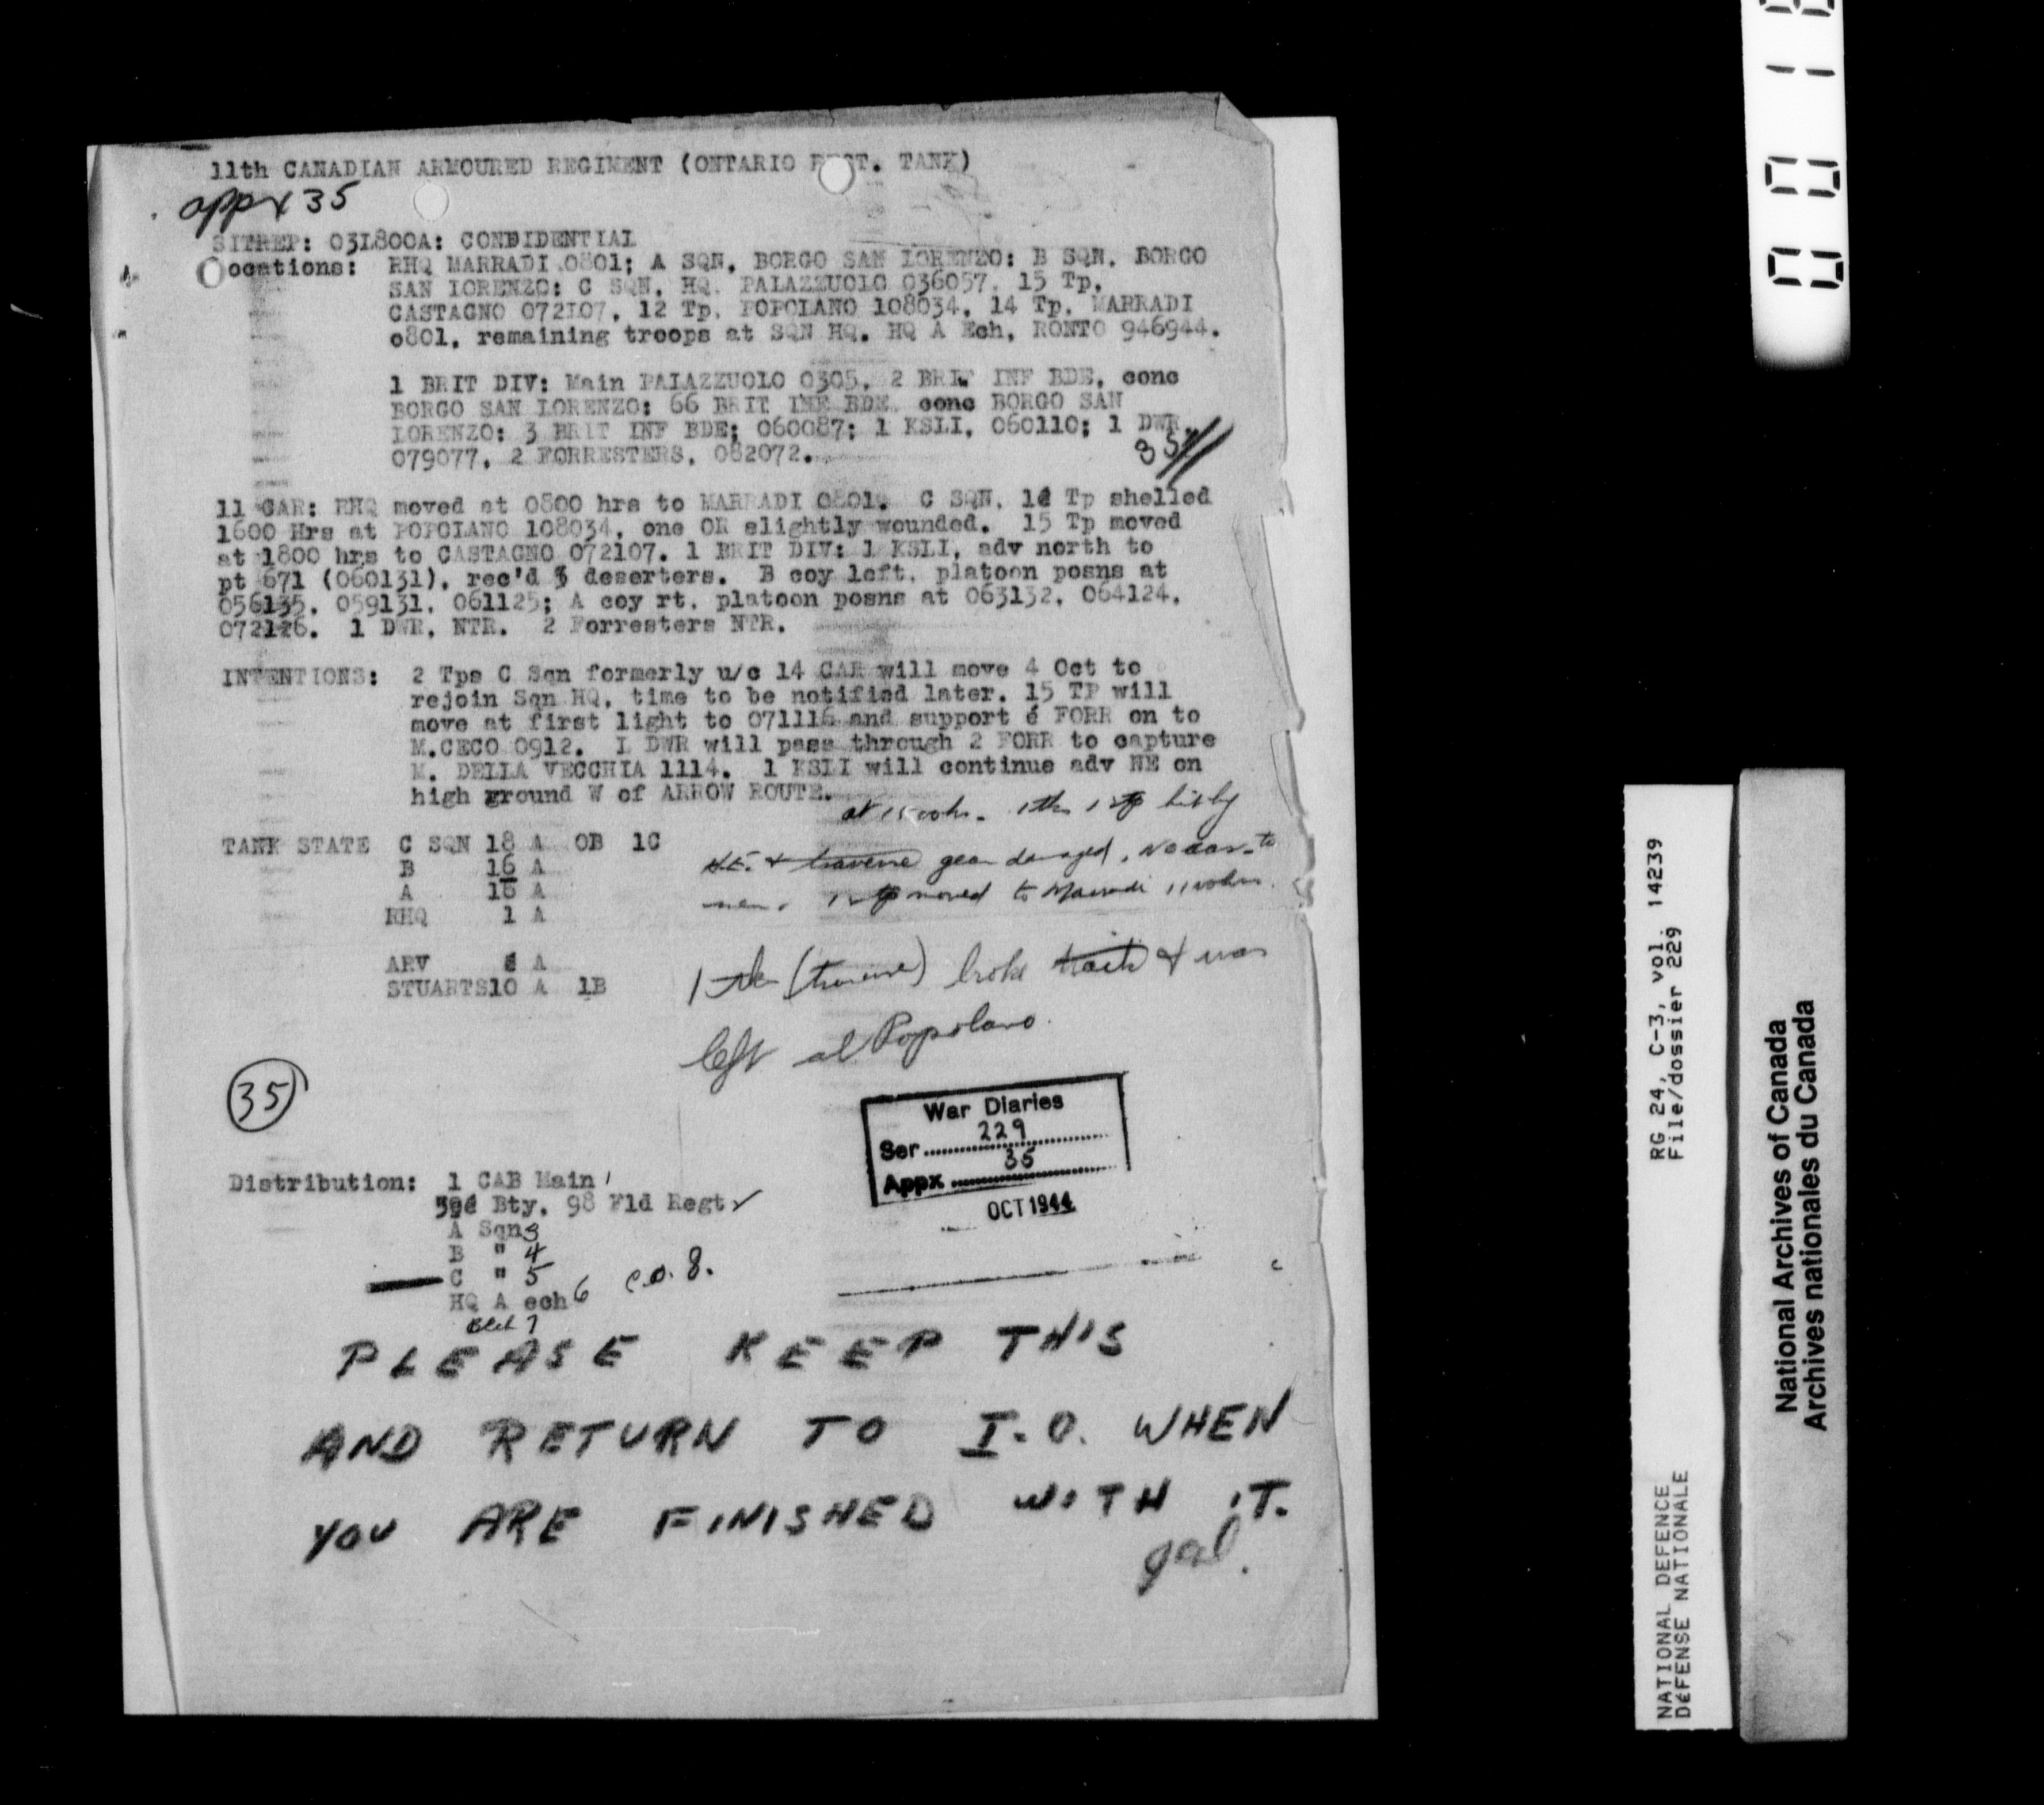 11th CANADIAN ARMOURED REGIMENT (ONTARIO REGT. TANK)
appx 35
SITREP: 031800A: CONDIDENTIAL
ocations: RHQ MARRADI 0801; A SQN, BORGO SAN LORENZO: B SQN, BORGO
SAN LORENZO: C SQN, HQ, PALAZZUOLO 036057, 15 Tp,
CASTAGNO 072107, 12 Tp, POPOLANO 108034, 14 Tp, MARRADI
o801, remaining troops at SQN HQ. HQ A Ech, RONTO 946944.
1 BRIT DIV: Main PALAZZUOLO 0305, 2 BRIT INF BDE, conc
BORGO SAN LORENZO: 66 BRIT INF BDE conc BORGO SAN
LORENZO: 3 BRIT INF BDE; 060087; 1 KSLI, 060110; 1 DWR,
079077, 2 FORRESTERS, 082072.
35
11 CAR: RHQ moved at 0800 hrs to MARRADI 0801. C SQN, Tp shelled
1600 Hrs at POPOLANO 108034, one OR slightly wounded. 15 Tp moved
at 1800 hrs to CASTAGNO 072107. 1 BRIT DIV: 1 KSLI, adv north to
pt 671 (060131), rec'd 3 deserters. B coy left, platoon posns at
056135, 059131, 061125; A coy rt, platoon posns at 063132, 064124,
072126. 1 DWR, NTR. 2 Forresters NTR.
INTENTIONS: 2 Tps C Sqn formerly u/c 14 CAR will move 4 Oct to
rejoin Sqn HQ, time to be notified later. 15 TP will
move at first light to 071116 and support FORR on to
M.CECO 0912. 1 DWR will pass through 2 FORR to capture
M. DELLA VECCHIA 1114. 1 KSLI will continue adv NE on
high ground W of ARROW ROUTE.
at 1500 hrs. 1 tk 12 tp hit by
H.E. & traverse gear damaged. No cas. to
men. 12 tp moved to Marradi 1100 hrs.
TANK STATE C SQN 18 A OB 1C
B 16 A
A 16 A
RHQ 1 A
ARV A
STUARTS10 A 1B
1 tk (traverse) broke track & was
left at Popolano.
35
War Diaries
Ser 229
Appx 35
OCT 1944
Distribution: 1 CAB Main 1
Bty, 98 Fld Regt
A Sqn 3
B " 4
C " 5
HQ A ech 6 C.O. 8.
B ech 7
PLEASE KEEP THIS
AND RETURN TO I.O. WHEN
YOU ARE FINISHED WITH IT.
RG 24, C-3, vol. 14239
File/dossier 229
NATIONAL DEFENCE
DÉFENSE NATIONALE
National Archives of Canada
Archives nationales du Canada